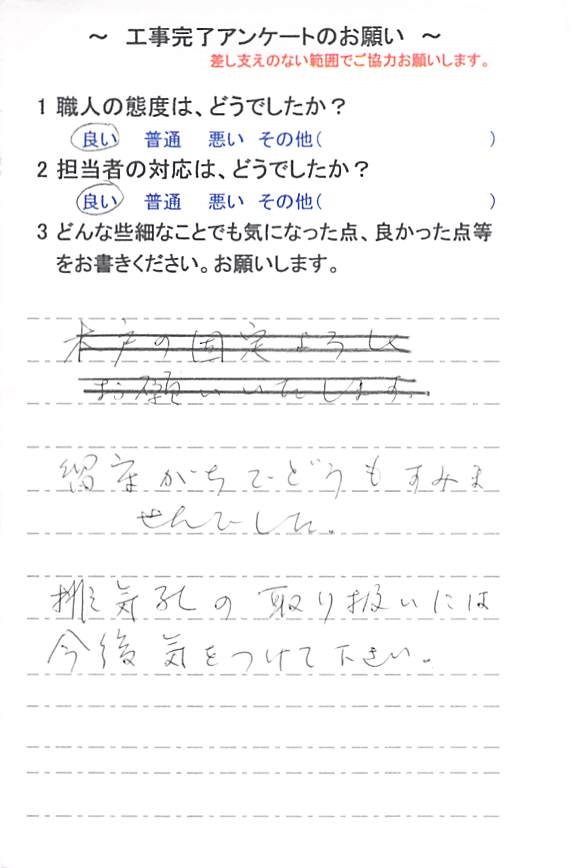 ～ 工事完了アンケートのお願い ～
差し支えのない範囲でご協力お願いします。
1 職人の態度は、どうでしたか？
良い 普通 悪い その他( )
2 担当者の対応は、どうでしたか？
良い 普通 悪い その他( )
3 どんな些細なことでも気になった点、良かった点等
をお書きください。お願いします。
木戸の固定よろしく
お願いいたします。
留守がちでどうもすみま
せんでした。
排気孔の取り扱いには
今後気をつけて下さい。